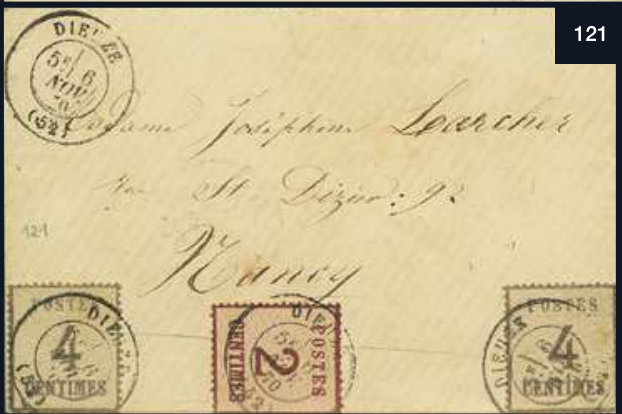 121
DIEUZE
5E 6
NOV.
70
(52)
Madame Joséphine Larcher
Rue St Dizier: 92
Nancy
121
POSTES
4
CENTIMES
DIEUZE
POSTES
2
CENTIMES
DIEUZE
70
(52)
POSTES
4
CENTIMES
DIEUZE
6